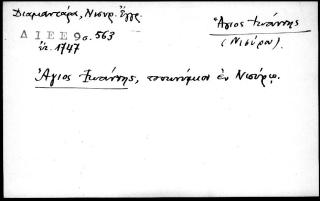 Διαμαντάρα, Νισυρ. Ἔγγρ.
ΔΙΕΕ 9 σ. 563
ἔτ. 1747
Ἅγιος Ἰωάννης
(Νισύρου).
Ἅγιος Ἰωάννης, τοπωνύμιον ἐν Νισύρῳ.